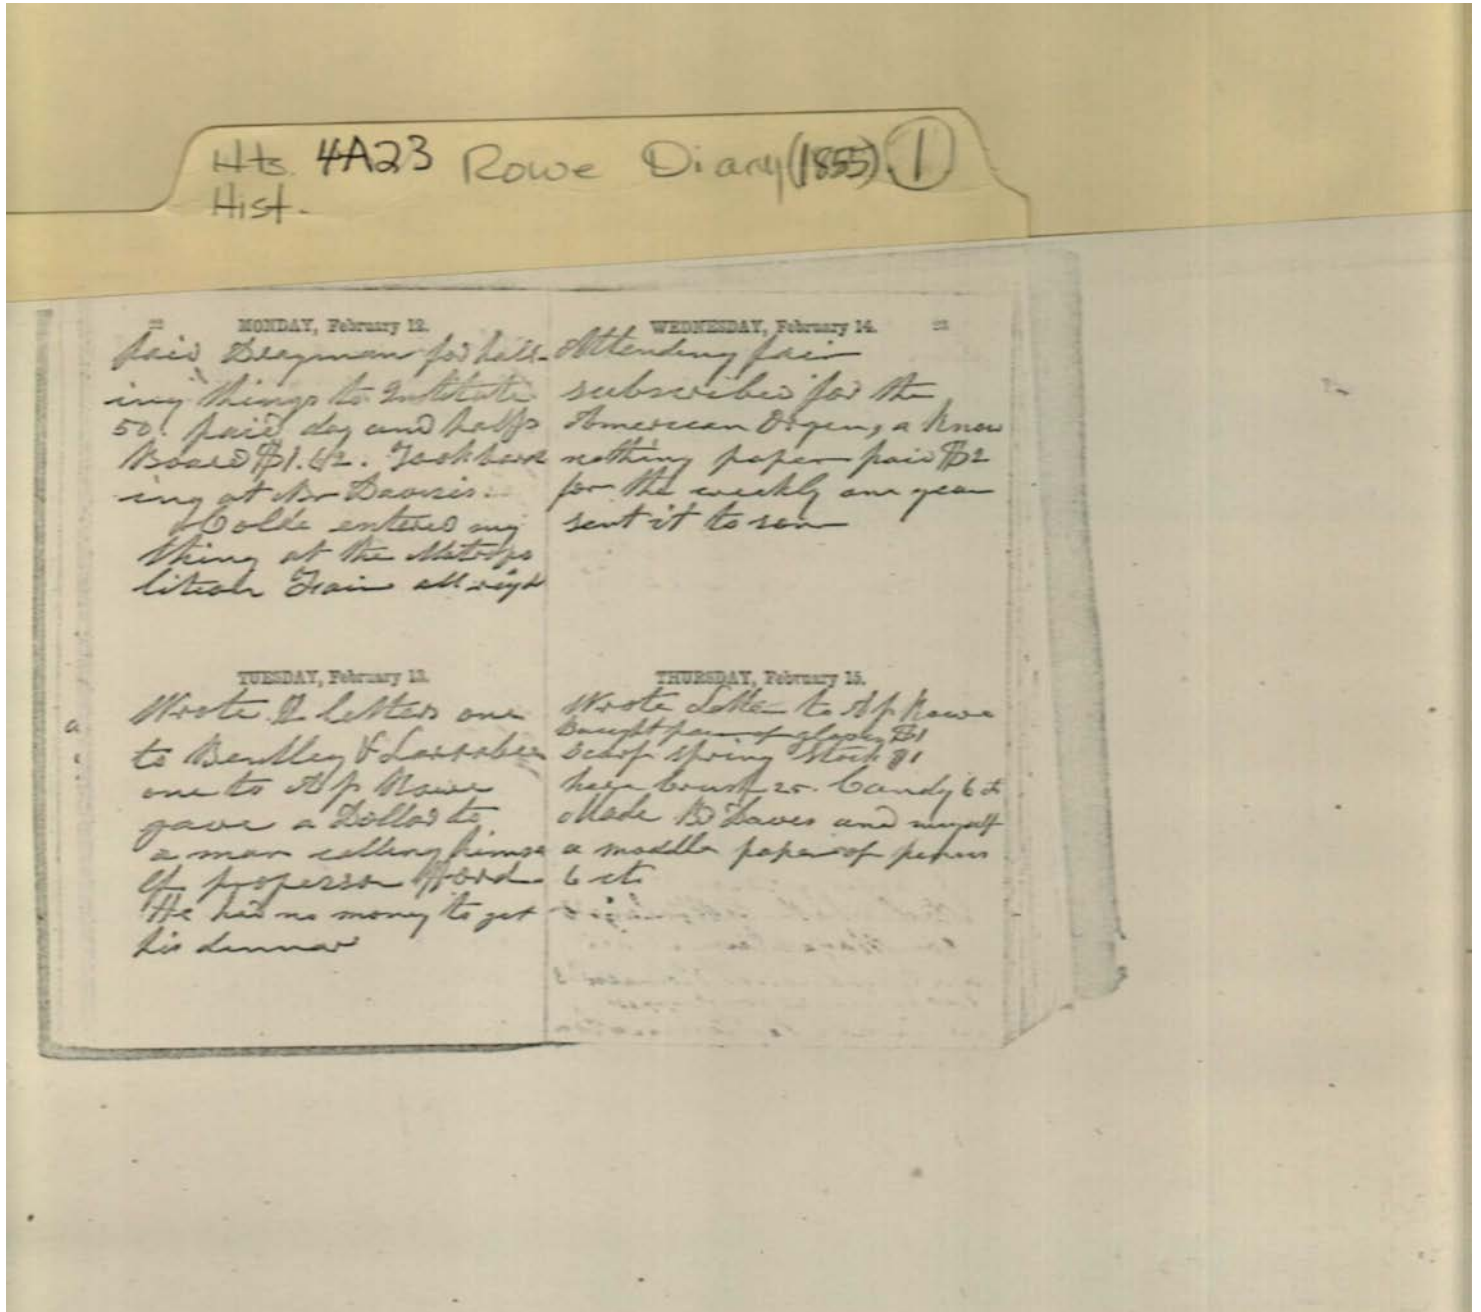 Hts. 4A23 Rowe Diary (1855) 1
Hist.
MONDAY, February 12.
paid Drayman for hall-
ing things to Institute
50. paid day and halfs
Board $1.62. Took board
ing at Mr Davis.
Colde entered my
thing at the Metropo
litean Fair all right
TUESDAY, February 13.
Wrote 2 letters one
to Bentley & Larrabee
one to A P Rowe
gave a Dollar to
a man calling himse
lf professor Word
He had no money to get
his dinnar
22
WEDNESDAY, February 14.
Attending fair
subscribed for the
American Organ, a Know
nothing paper paid $2
for the weekly one year
sent it to son
THURSDAY, February 15.
Wrote Letter to A P Rowe
Bought pair of glases $1
Scarf spring stock $1
brush 25. Candy 6 ct
Made Davis and myself
a moddle paper of
6 ct